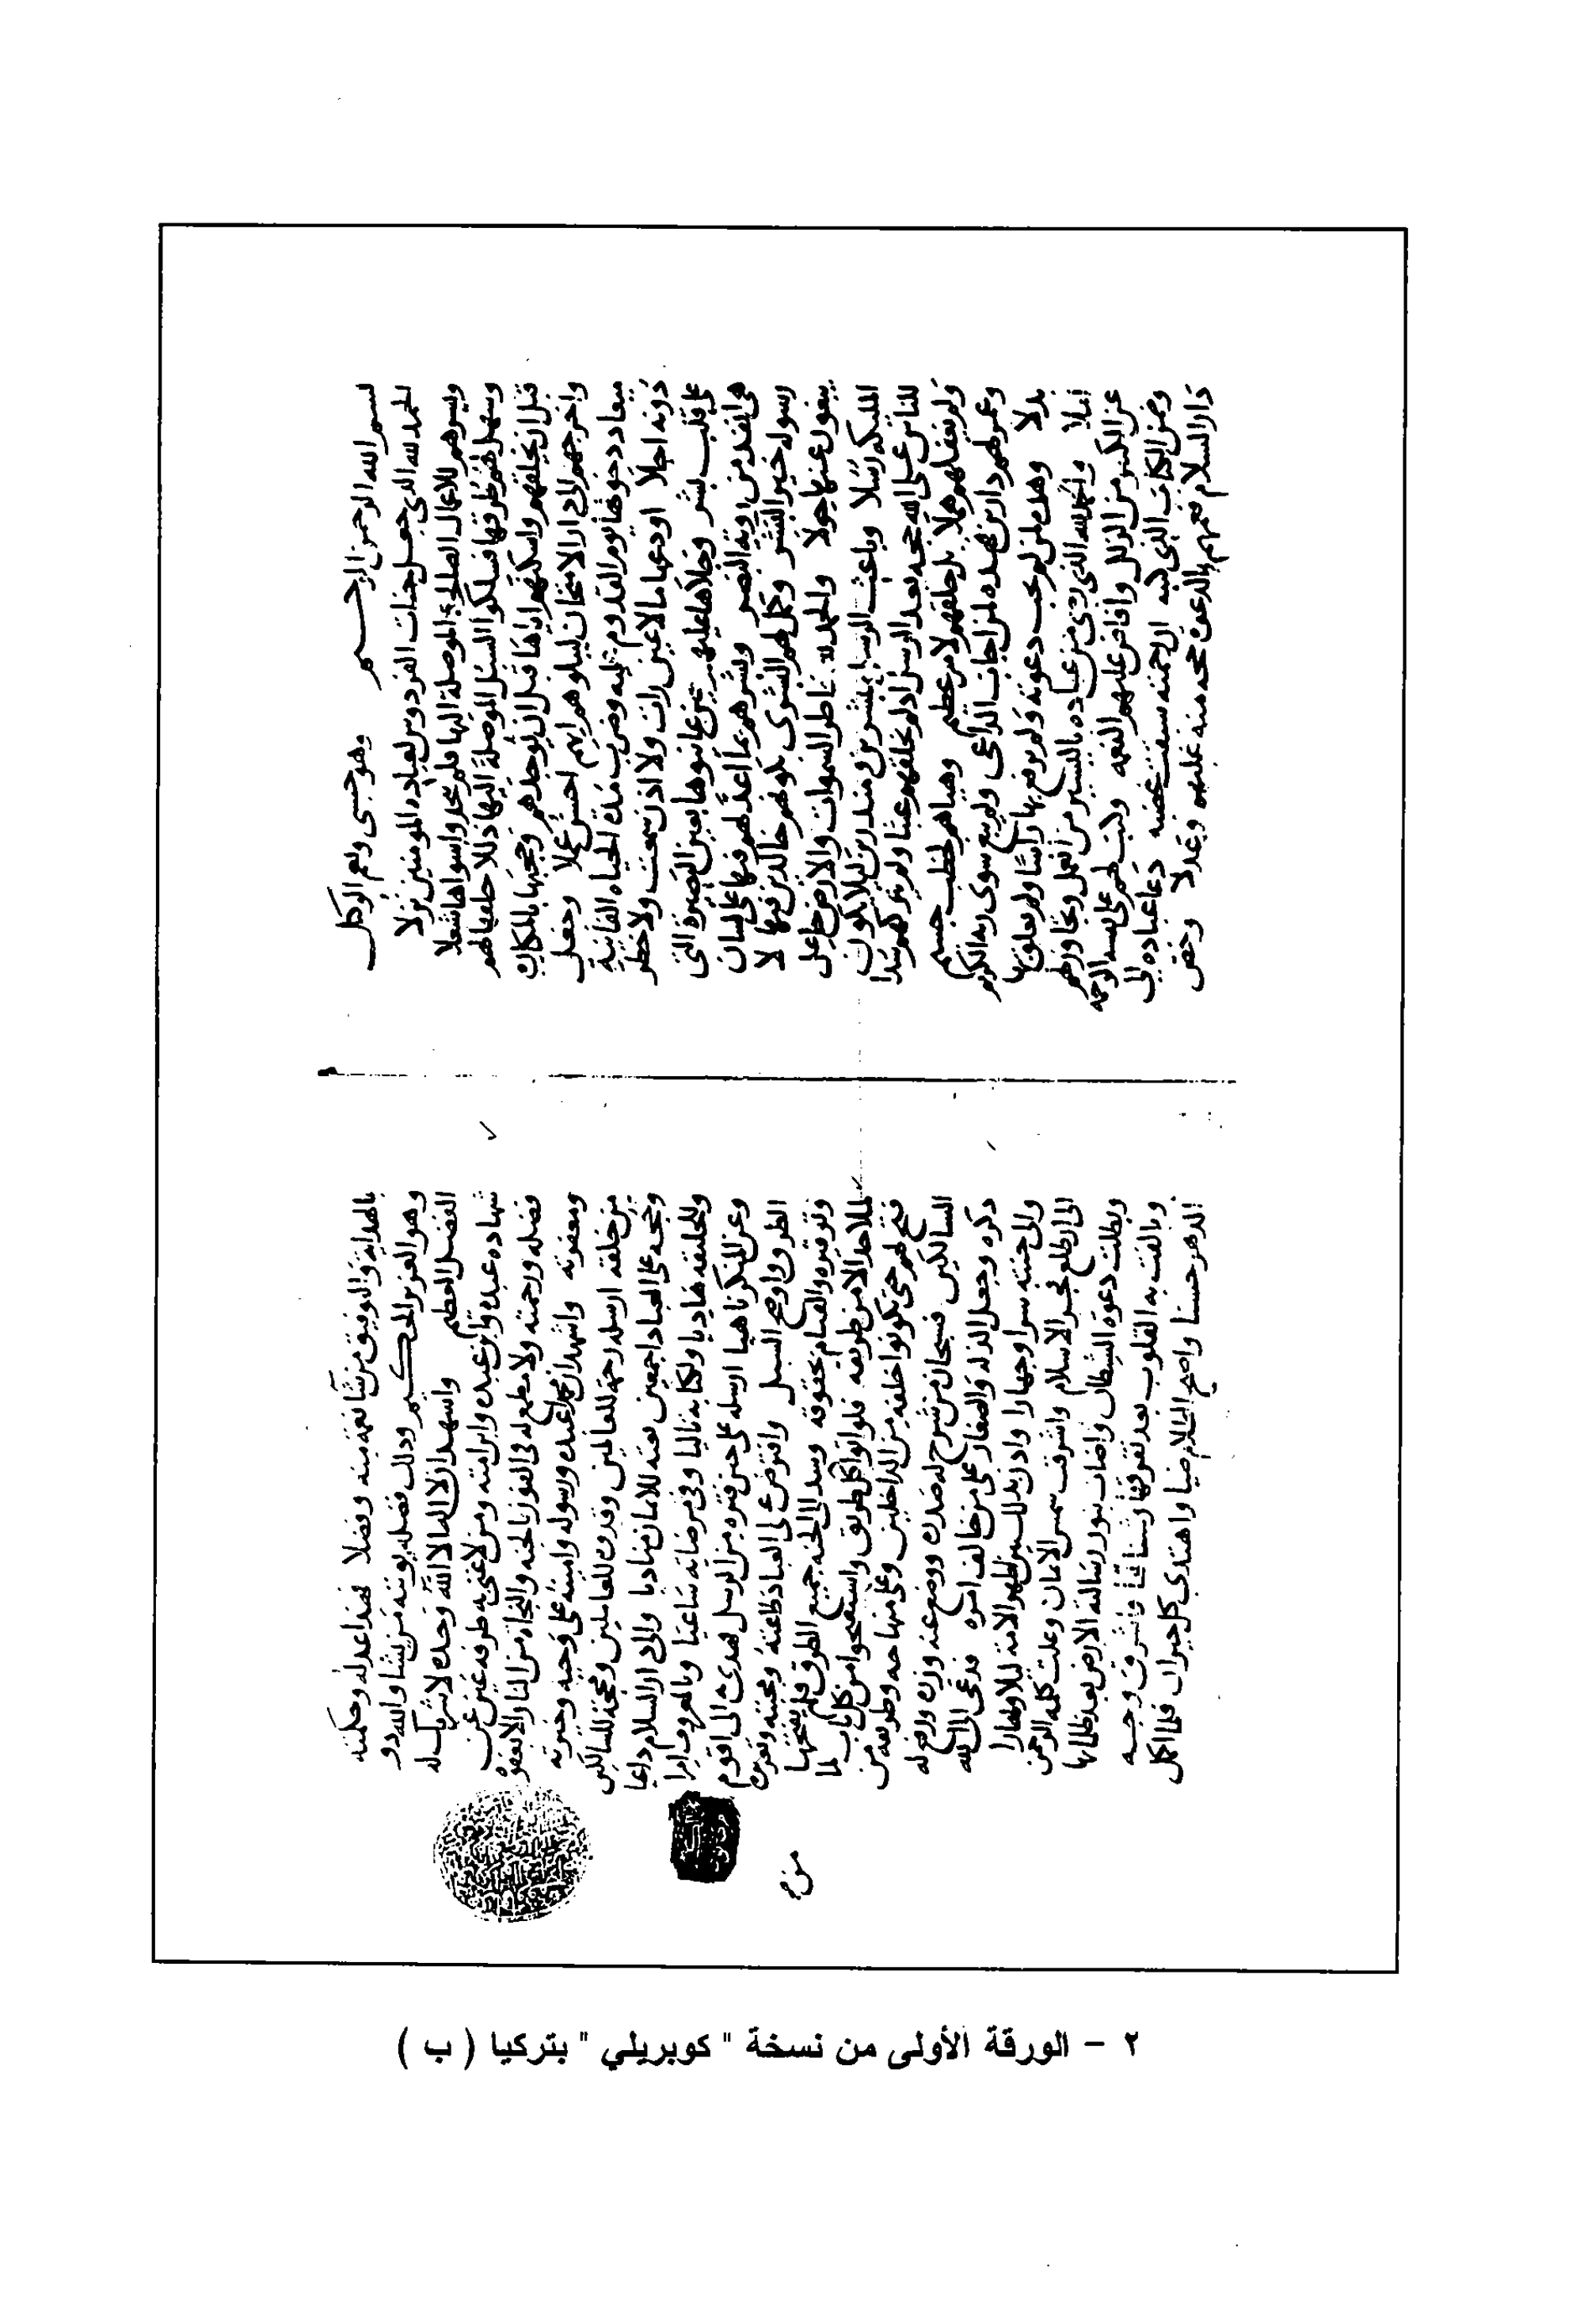 بسم الله الرحمن الرحيم وهو حسبي ونعم الوكيل
الحمد لله الذي جعل جنات الفردوس لعباده المومنين نزلا
ويسرهم للاعمال الصالحة الموصلة اليها فلم يتخذوا سواها شغلا
وسهل لهم طرقها فسلكوا السبل الموصلة اليها ذللا خلقها لهم
قبل ان يخلقهم واسكنهم اياها قبل ان يوجدهم وحجبها بالمكاره
واخرجهم الى دار الامتحان ليبلوهم ايهم احسن عملا وجعل
ميعاد دخولها يوم القدوم عليه وضرب مدة الحياة الفانية
دونه اجلا اودعها ما لا عين رات ولا اذن سمعت ولا خطر
على قلب بشر وجلاها عليهم حتى عاينوها بعين البصيرة التي
هي انفذ من روية البصر وبشرهم بما اعد لهم فيها على لسان
رسوله خير البشر وكمل لهم البشرى بكونهم خالدين فيها لا
يبغون عنها حولا والحمد لله فاطر السموات والارض جاعل
الملائكة رسلا وباعث الرسل مبشرين ومنذرين ليلا يكون
للناس على الله حجة بعد الرسل اذ لم يخلقهم عبثا ولم يتركهم سدا
ولم يغفلهم هملا بل خلقهم لامر عظيم وهياهم لخطب جسيم
وعمر لهم دارين فهذه لمن اجاب الداعي ولم يبغ سوى ربه الكريم
بدلا وهذه لمن لم يجب دعوته ولم يرفع بها راسا ولم يعلق بها
املا والحمد لله الذي رضي من عباده باليسير من العمل وتجاوز لهم
عن الكثير من الزلل وافاض عليهم النعمة وكتب على نفسه الرحمة
وضمن الكتاب الذي كتبه ان رحمته سبقت غضبه دعا عباده الى
دار السلام فعمهم بالدعوة حجة منه عليهم وعدلا وخص
بالهداية والتوفيق من شا نعمة منه وفضلا فهذا عدله وحكمته
وهو العزيز الحكيم وذلك فضله يوتيه من يشا والله ذو
الفضل العظيم واشهد ان لا اله الا الله وحده لا شريك له
شهادة عبده وابن عبده وابن امته ومن لا غنى به طرفة عين عن
فضله ورحمته ولا مطمع له في الفوز بالجنة والنجاة من النار الا بعفوه
ومغفرته واشهد ان محمدا عبده ورسوله وامينه على وحيه وخيرته
من خلقه ارسله رحمة للعالمين وقدوة للعاملين ومحجة للسالكين
وحجة على العباد اجمعين بعثه للايمان مناديا والى دار السلام داعيا
وللخليقة هاديا ولكتابه تاليا وفي مرضاته ساعيا وبالمعروف امرا
وعن المنكر ناهيا ارسله على حين فترة من الرسل فهدى به الى اقوم
الطرق واوضح السبل وافترض على العباد طاعته ومحبته وتعزيره
وتوقيره والقيام بحقوقه وسد الى الجنة جميع الطرق فلم يفتحها
لاحد الا من طريقه فلو اتوا كل طريق واستفتحوا من كل باب لما
فتح لهم حتى يكونوا خلفه من الداخلين وعلى منهاجه وطريقه من
السالكين فسبحان من شرح له صدره ووضع عنه وزره ورفع له
ذكره وجعل الذلة والصغار على من خالف امره فدعى الى الله
والى جنته سرا وجهارا واذن بذلك بين اظهر الامة ليلا ونهارا
الى ان طلع فجر الاسلام واشرقت شمس الايمان وعلت كلمة الرحمن
وبطلت دعوة الشيطان واضات بنور رسالته الارض بعد ظلماتها
وتالفت به القلوب بعد تفرقها وشتاتها فاشرق وجه
الدهر حسنا واصبح الظلام ضيا واهتدى كل حيران فلما اكمل
٢ - الورقة الأولى من نسخة " كوبريلي " بتركيا ( ب )